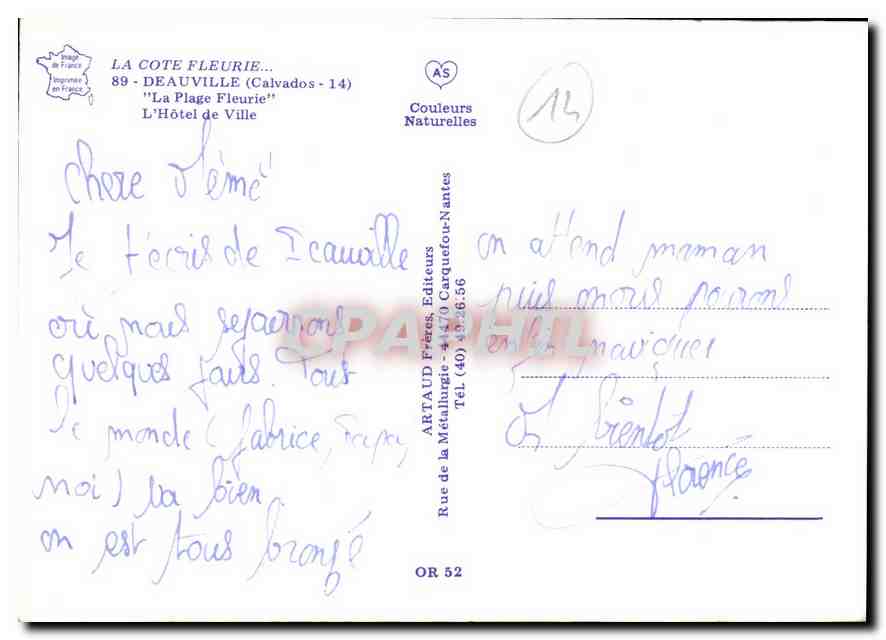 Image
de France
Imprimée
en France
LA COTE FLEURIE...
89 - DEAUVILLE (Calvados - 14)
"La Plage Fleurie"
L'Hôtel de Ville
AS
Couleurs
Naturelles
14
chere Mémé
Je t'écris de Deauville
où nous sejournons
quelques jours. Tout
le monde (fabrice, Papa,
moi) va bien.
on est tous bronzé
ARTAUD Frères, Editeurs
Rue de la Métallurgie - 44470 Carquefou-Nantes
Tél. (40) 49.26.56
on attend maman
puis nous pourons
enfin naviguer
A bientot
florence
OR 52
CPAPHIL